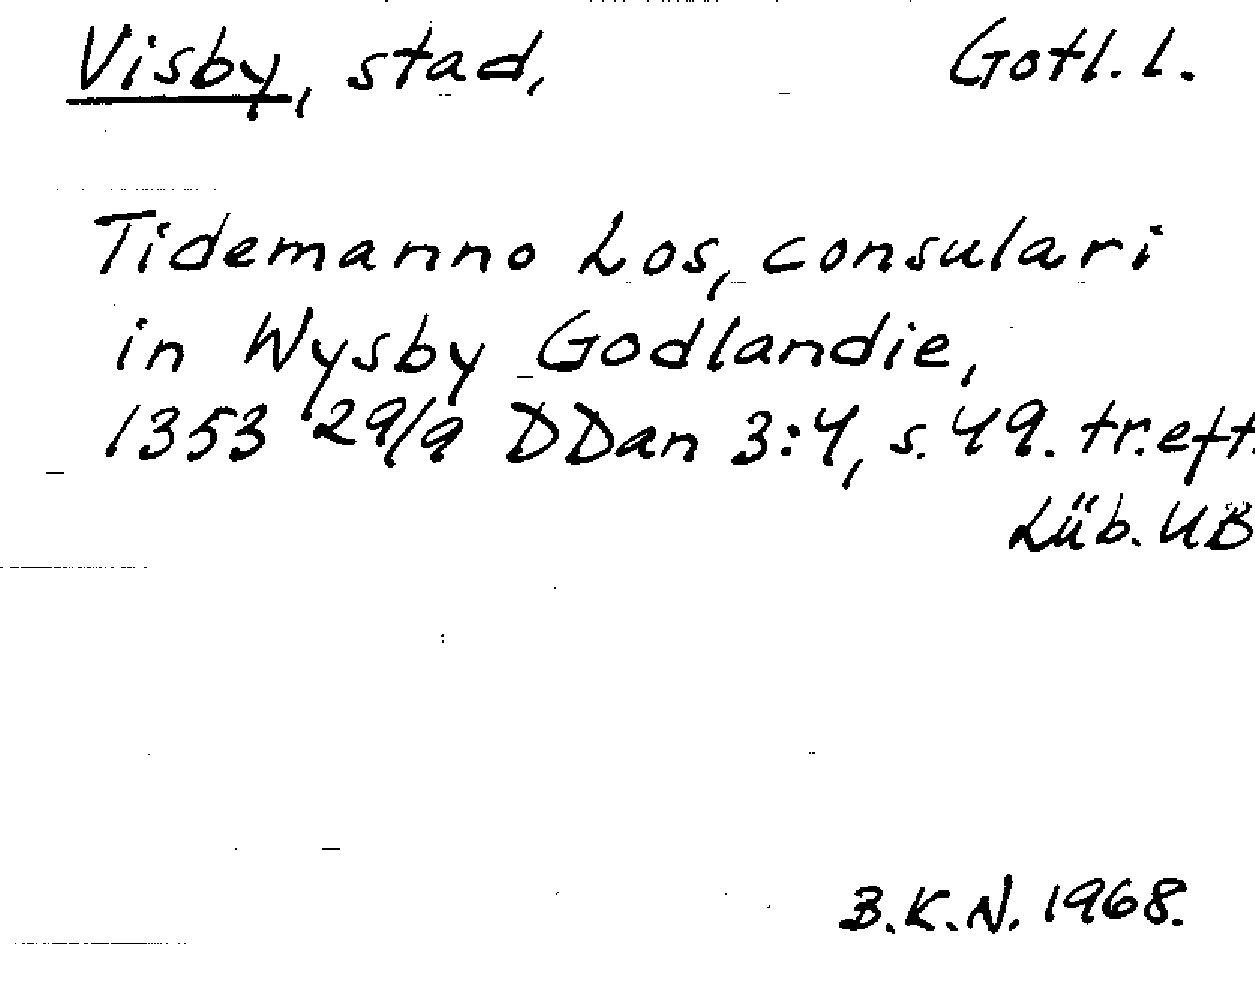 Visby, stad, Gotl. l.
Tidemanno Los, consulari
in Wysby Godlandie,
1353 29/9 DDan 3:4, s. 49. tr. eft.
Lüb. UB
B.K.N. 1968.